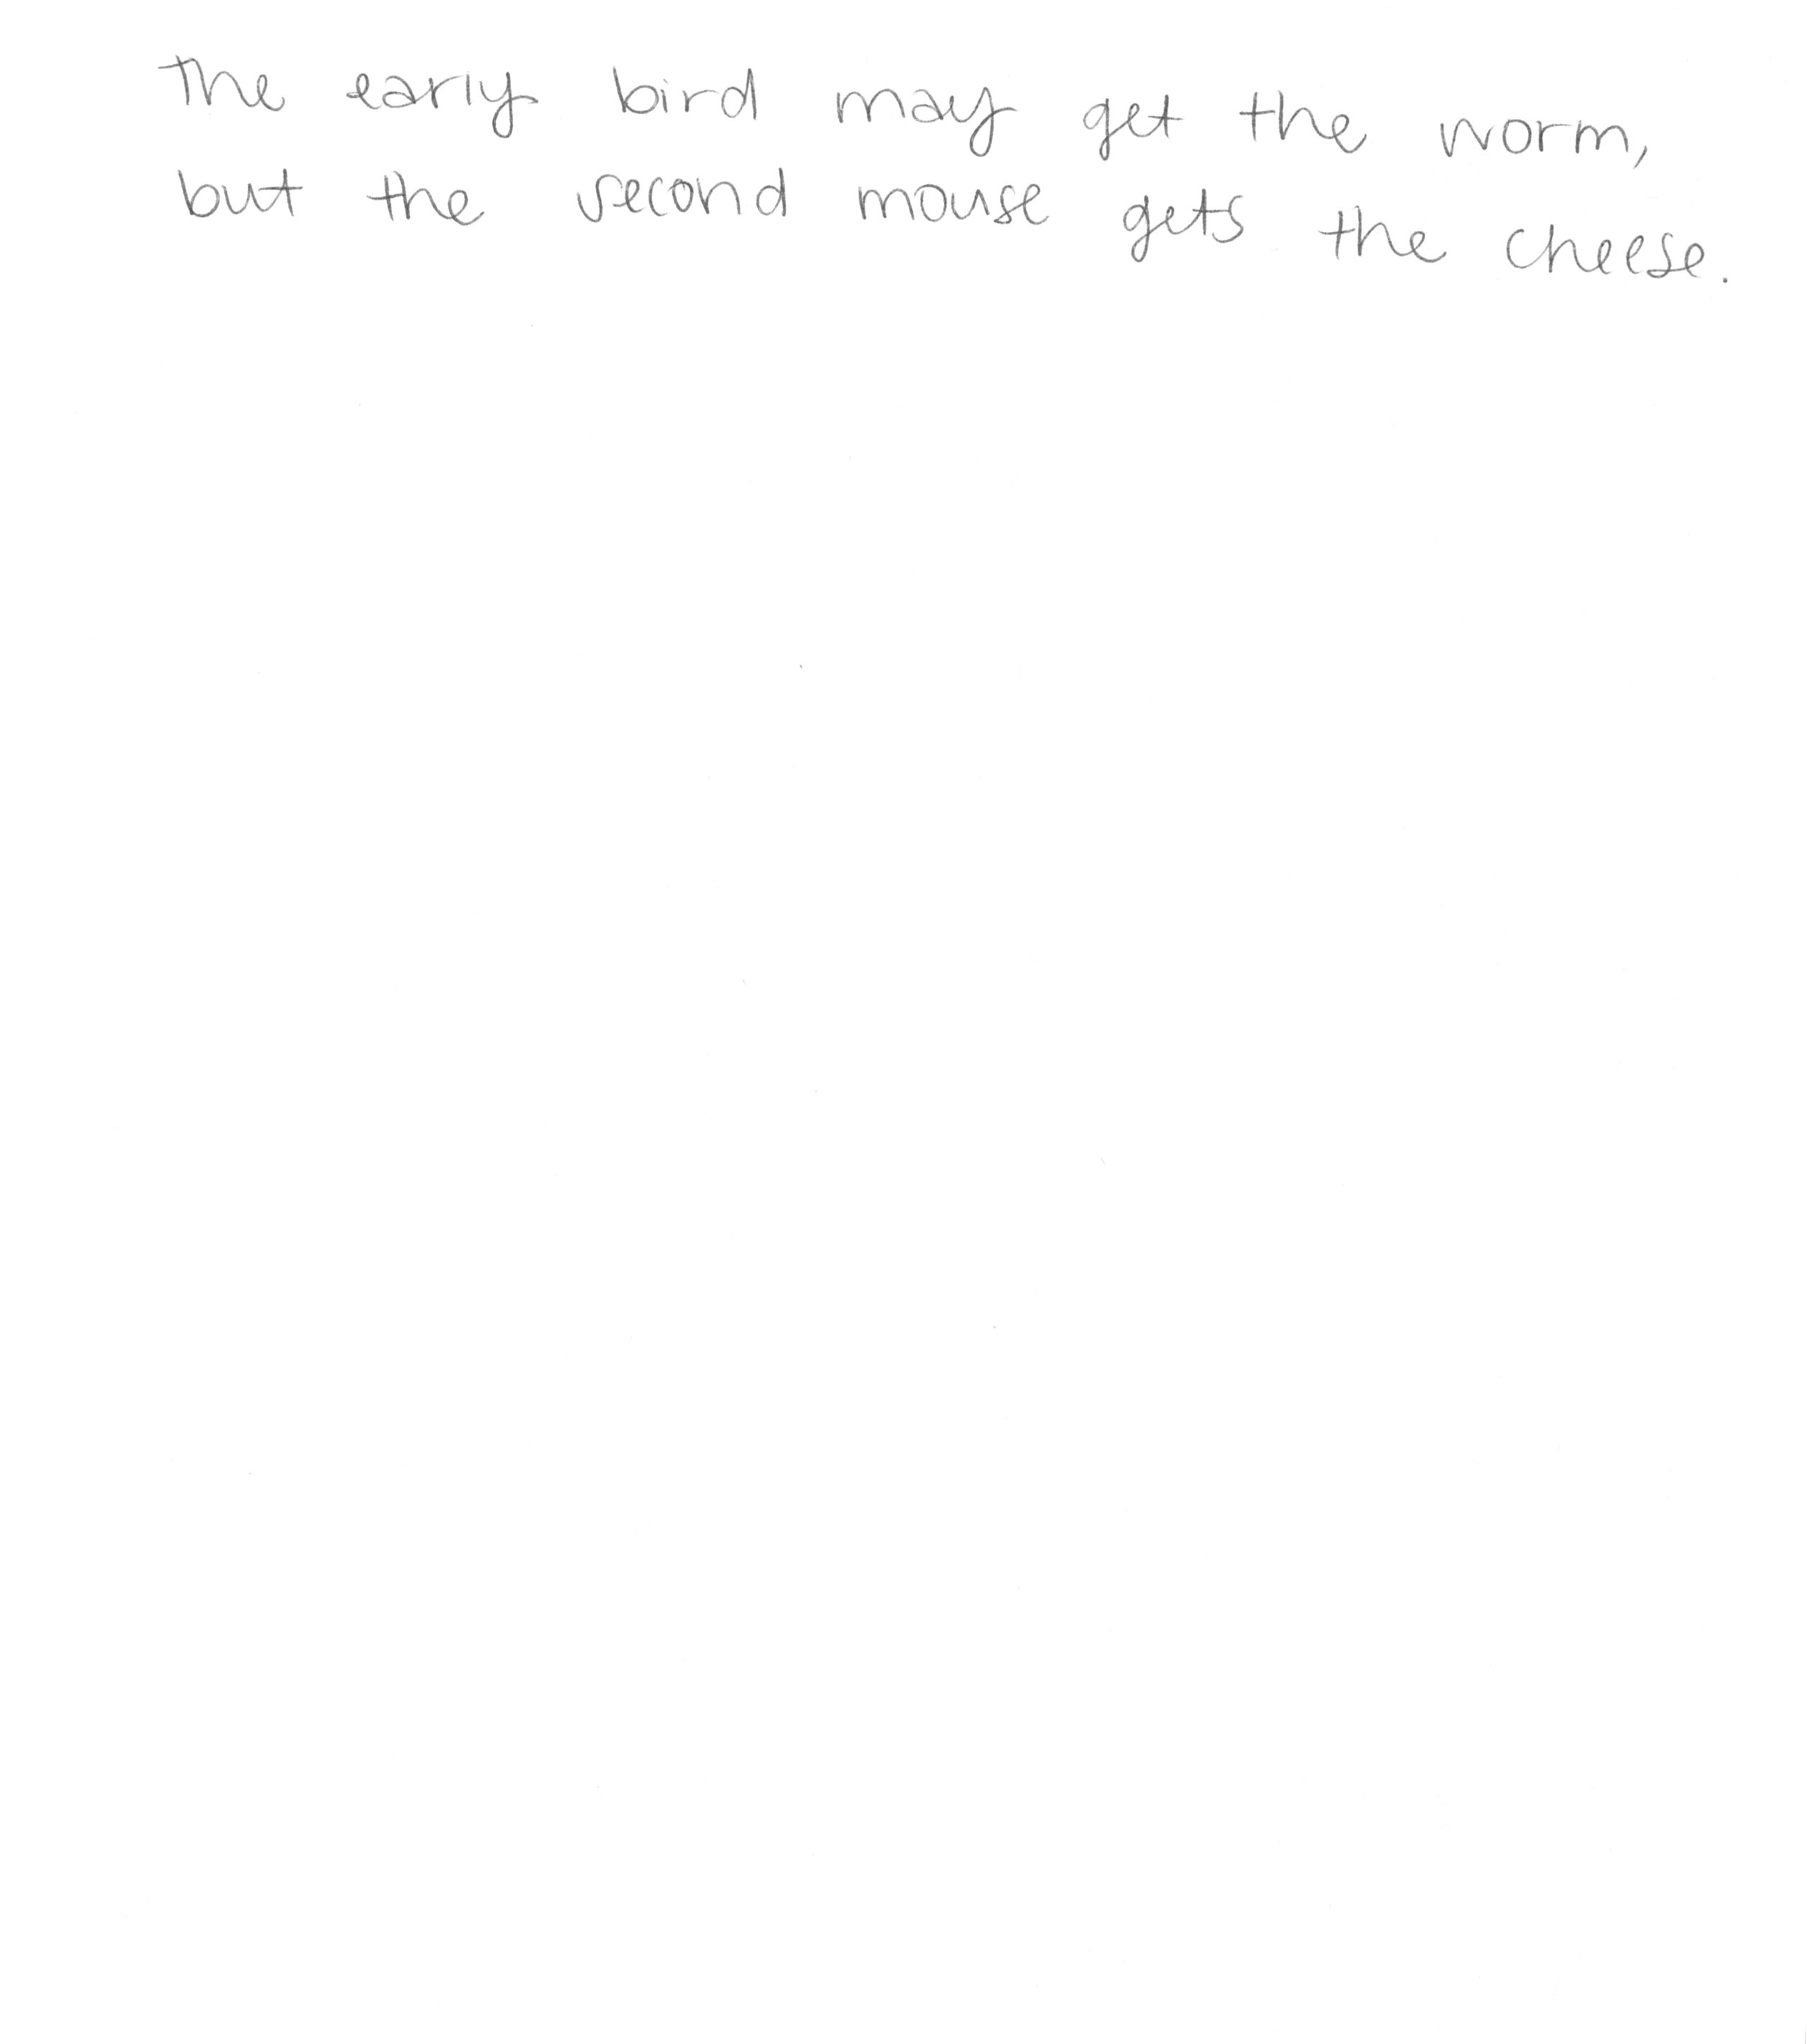 The early bird may get the worm,
but the second mouse gets the cheese.